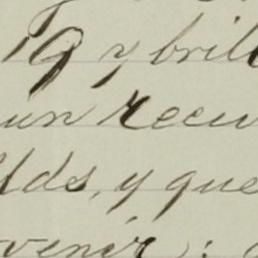 19 y brill
un recu
Uds, y que
venir;